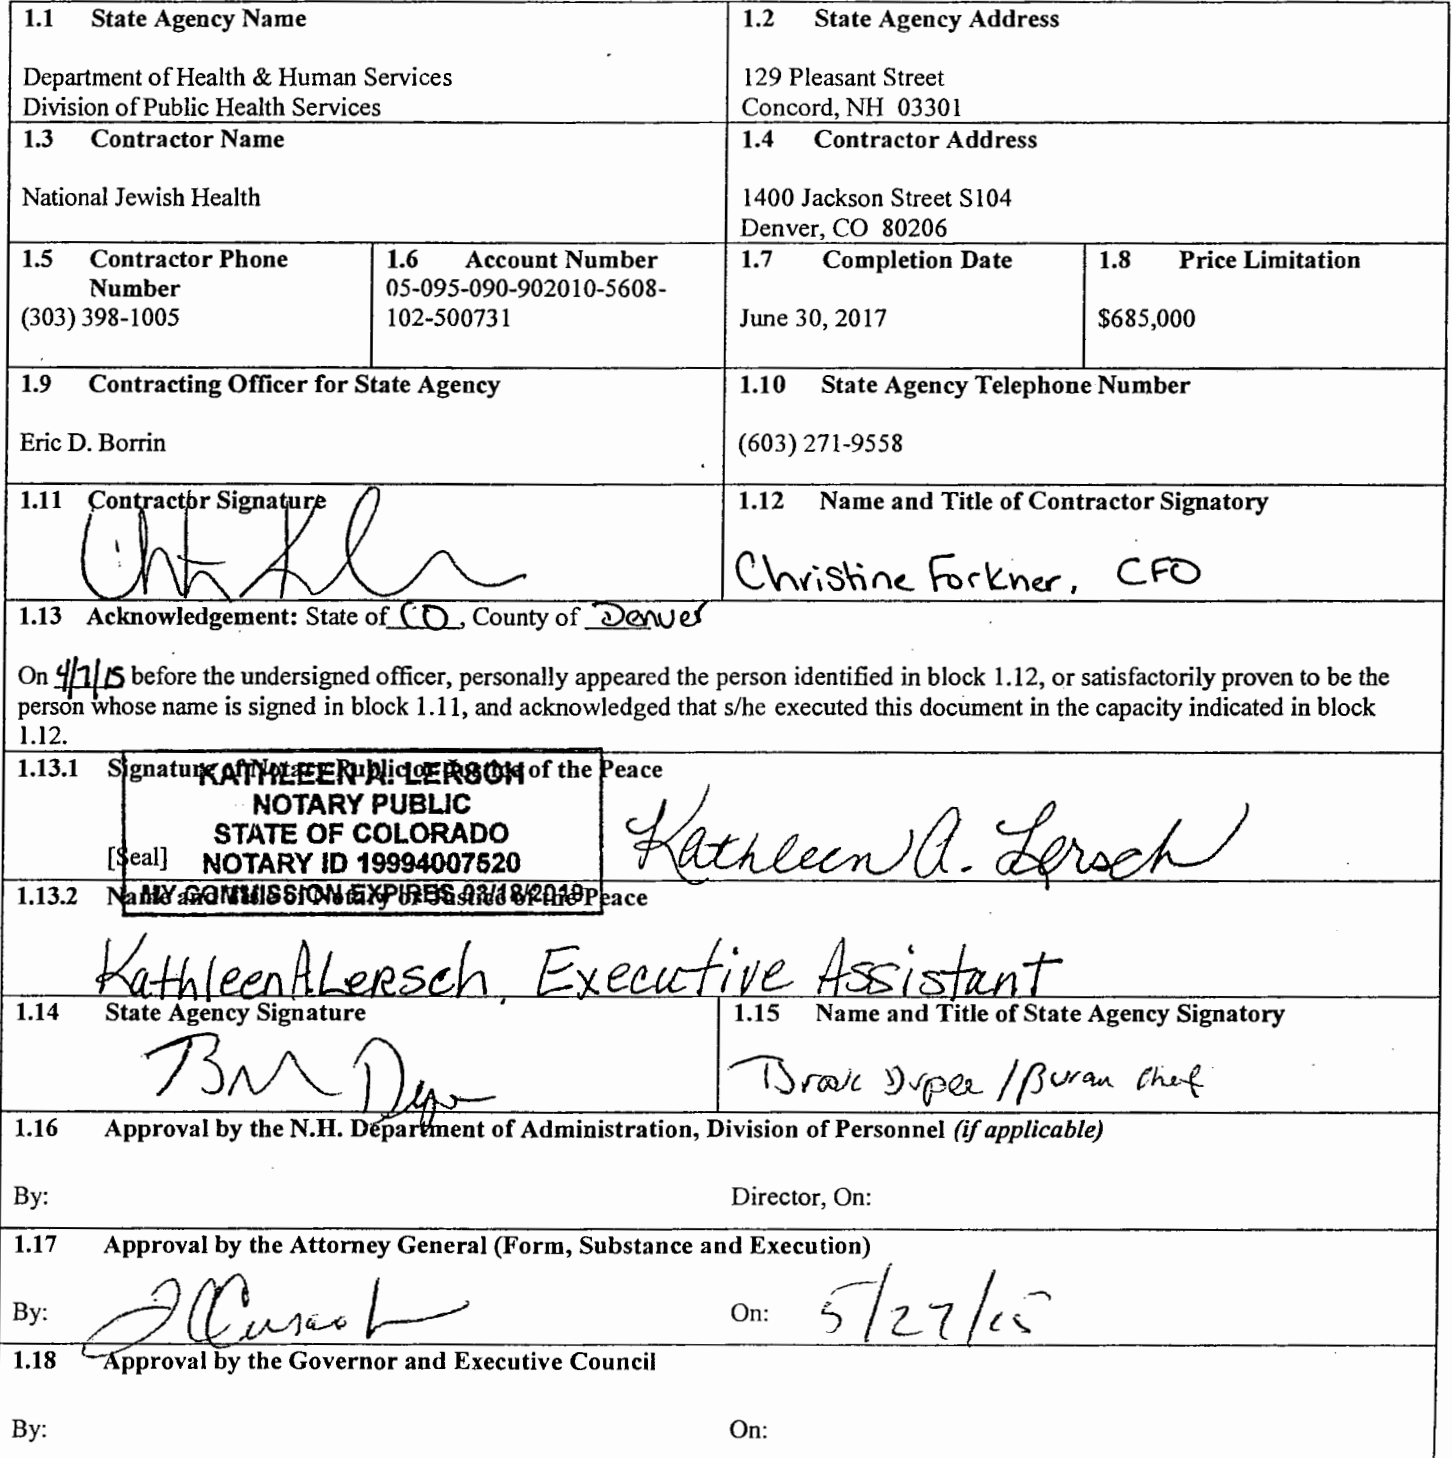 1.1 State Agency Name
Department of Health & Human Services
Division of Public Health Services
1.2 State Agency Address
129 Pleasant Street
Concord, NH 03301
1.3 Contractor Name
National Jewish Health
1.4 Contractor Address
1400 Jackson Street S104
Denver, CO 80206
1.5 Contractor Phone
Number
(303) 398-1005
1.6 Account Number
05-095-090-902010-5608-
102-500731
1.7 Completion Date
June 30, 2017
1.8 Price Limitation
$685,000
1.9 Contracting Officer for State Agency
Eric D. Borrin
1.10 State Agency Telephone Number
(603) 271-9558
1.11 Contractor Signature
1.12 Name and Title of Contractor Signatory
Christine Forkner, CFO
1.13 Acknowledgement: State of CO, County of Denver
On 4/7/15 before the undersigned officer, personally appeared the person identified in block 1.12, or satisfactorily proven to be the
person whose name is signed in block 1.11, and acknowledged that s/he executed this document in the capacity indicated in block
1.12.
1.13.1 Signature of Notary Public or Justice of the Peace
KATHLEEN A. LERSCH
NOTARY PUBLIC
STATE OF COLORADO
[Seal] NOTARY ID 19994007520
MY COMMISSION EXPIRES 03/18/2019
Kathleen A. Lersch
1.13.2 Name and Title of Notary or Justice of the Peace
Kathleen A Lersch, Executive Assistant
1.14 State Agency Signature
1.15 Name and Title of State Agency Signatory
Brook Dupee /
1.16 Approval by the N.H. Department of Administration, Division of Personnel (if applicable)
By:
Director, On:
1.17 Approval by the Attorney General (Form, Substance and Execution)
By:
On: 5/27/15
1.18 Approval by the Governor and Executive Council
By:
On: